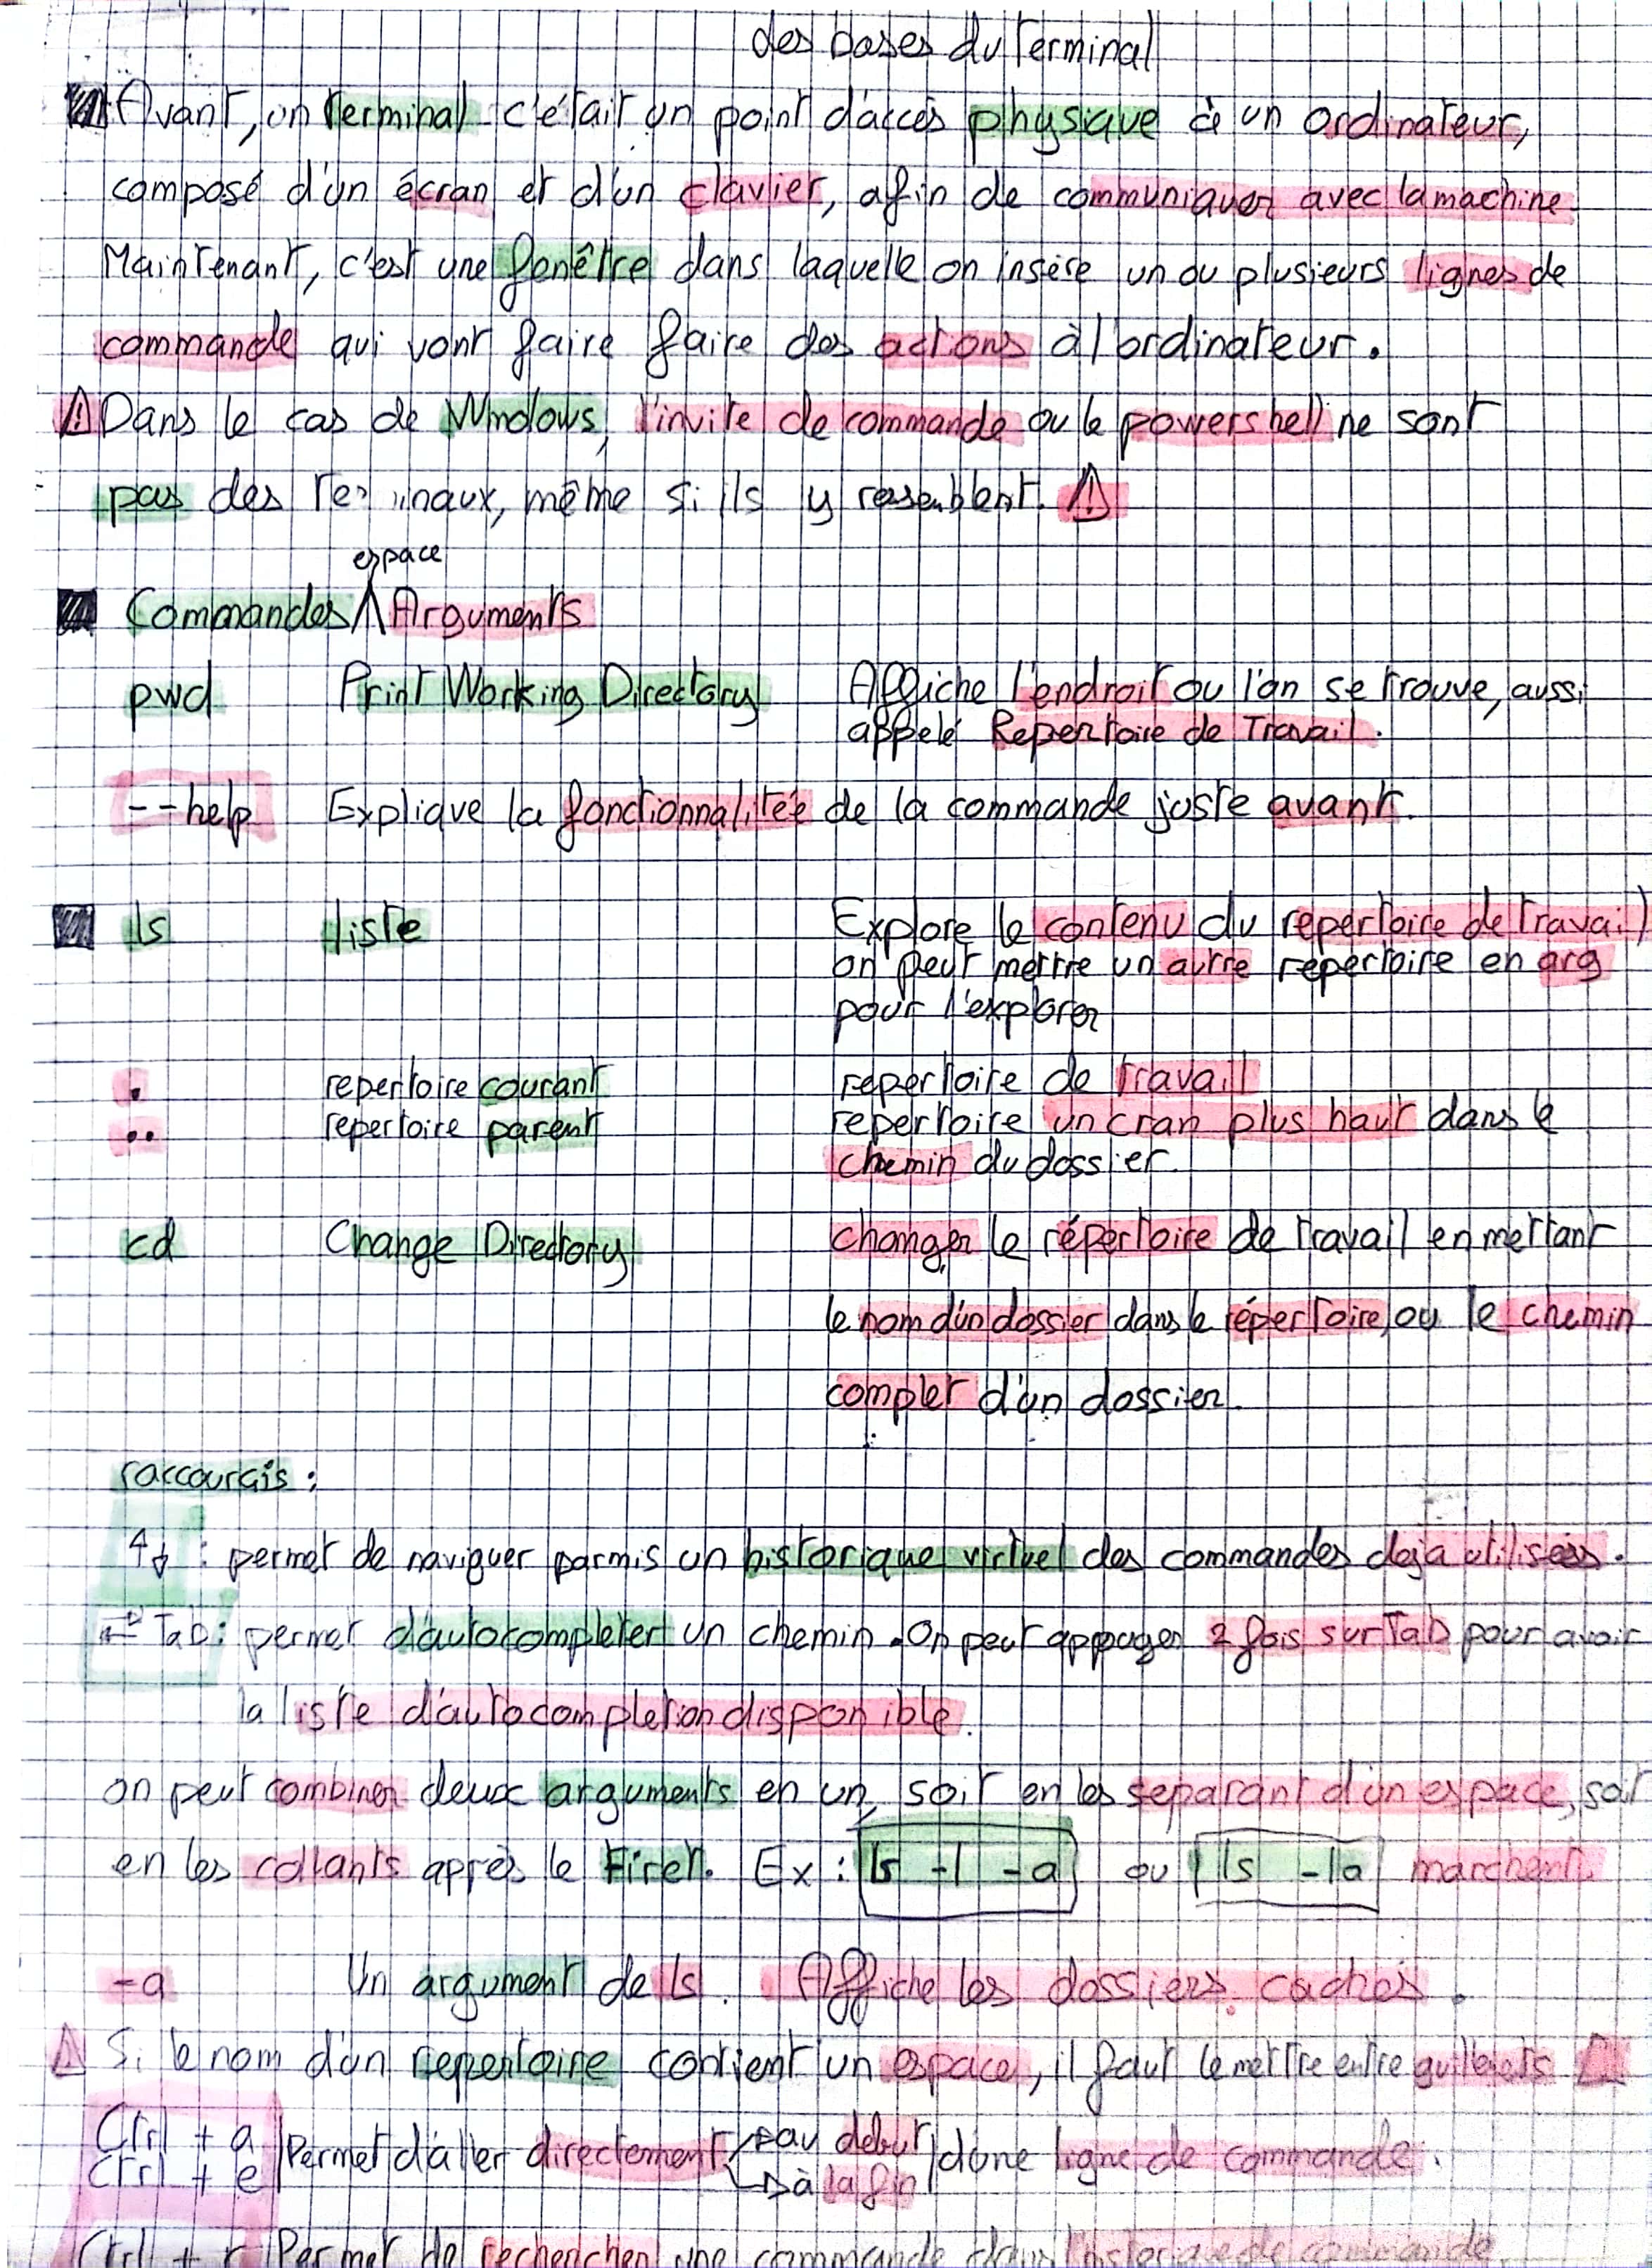 des bases du Terminal
Avant, un Terminal c'était un point d'accès physique à un ordinateur,
composé d'un écran et d'un clavier, afin de communiquer avec la machine
Maintenant, c'est une fenêtre dans laquelle on insère un ou plusieurs lignes de
commande qui vont faire faire des actions à l'ordinateur.
⚠ Dans le cas de Windows, l'invite de commande ou le powershell ne sont
pas des inaux, même si ils y ressemblent. ⚠
espace
Commandes ∧ Arguments
pwd Print Working Directory Affiche l'endroit ou l'on se trouve, aussi
appelé Repertoire de Travail.
--help Explique la fonctionnalitée de la commande juste avant.
ls liste Explore le contenu du repertoire de travail
on peut mettre un autre repertoire en arg
pour l'explorer
. repertoire courant repertoire de travail
.. repertoire parent repertoire un cran plus haut dans le
chemin du dossier.
cd Change Directory changer le répertoire de travail en mettant
le nom d'un dossier dans le répertoire, ou le chemin
complet d'un dossier.
raccourcis :
↑↓ : permet de naviguer parmis un historique virtuel des commandes deja utilisées.
⇄ Tab : permet d'autocompleter un chemin. On peut appuyer 2 fois sur Tab pour avoir
la liste d'autocompletion disponible.
on peut combiner deux arguments en un, soit en les separant d'un espace, soit
en les collants après le tiret. Ex : ls -l -a ou ls -la marchent.
-a Un argument de ls. Affiche les dossiers cachés.
⚠ Si le nom d'un repertoire contient un espace, il faut le mettre entre guillemets ⚠
Ctrl + a Permet d'aller directement → au debut d'une ligne de commande.
Ctrl + e → à la fin
Ctrl + r Permet de rechercher une commande dans l'historique de commande